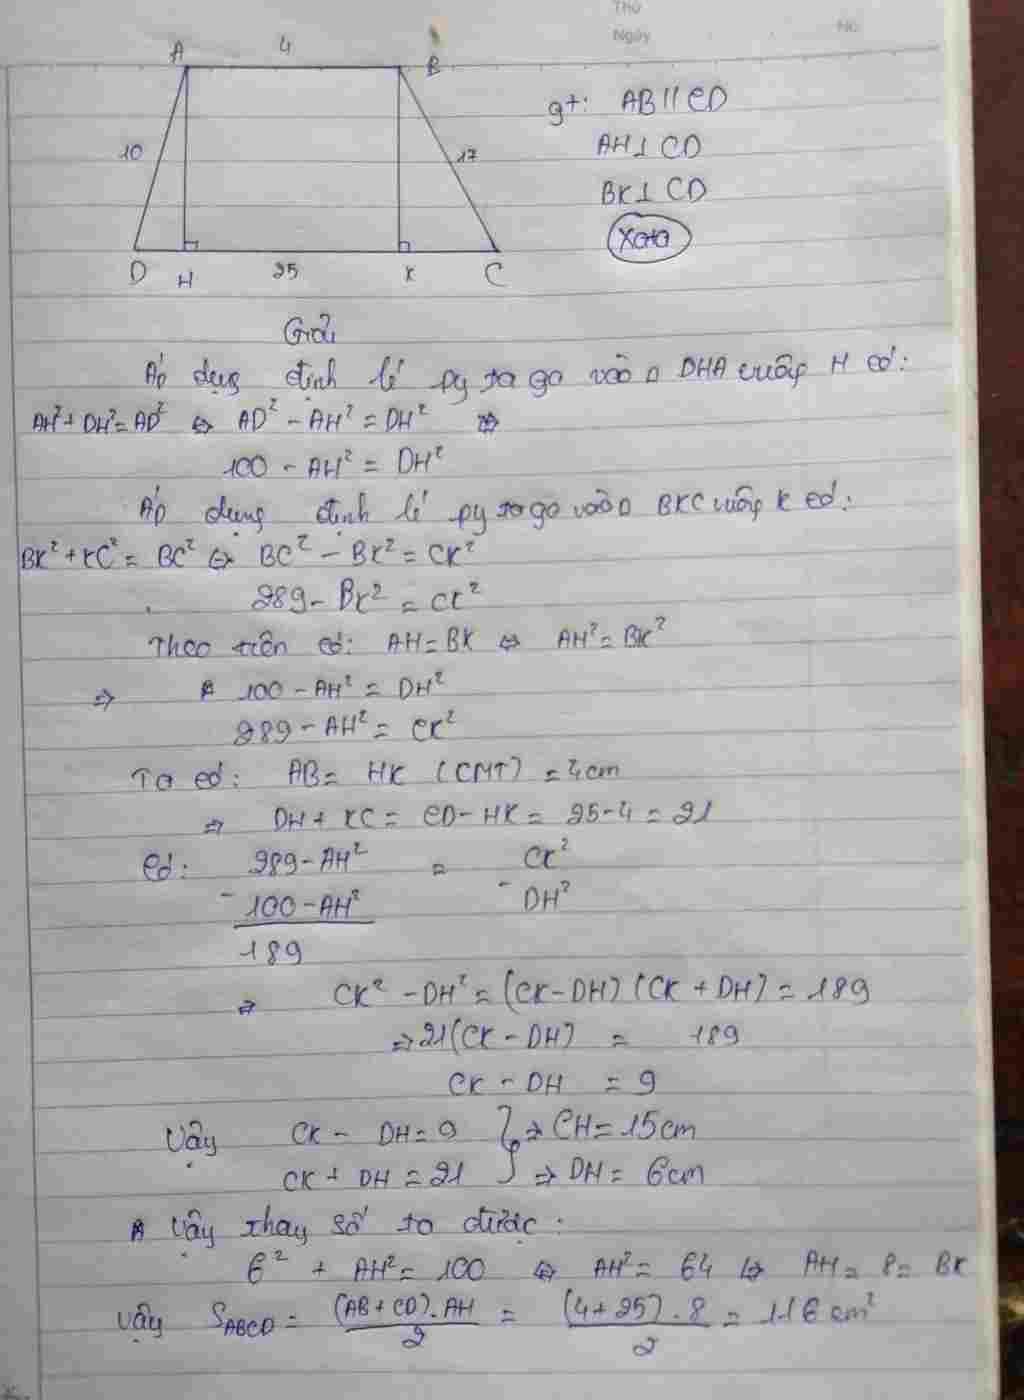 Thứ
Ngày
No
A 4 B
10
17
D H 25 K C
gt: AB // CD
AH ⊥ CD
BK ⊥ CD
Giải
Áp dụng định lí py ta go vào Δ DHA vuông H có:
AH² + DH² = AD² ⇔ AD² - AH² = DH² ⇔
100 - AH² = DH²
Áp dụng định lí py ta go vào Δ BKC vuông K có:
BK² + KC² = BC² ⇔ BC² - BK² = CK²
289 - BK² = CK²
Theo trên có: AH = BK ⇔ AH² = BK²
⇒ 100 - AH² = DH²
289 - AH² = CK²
Ta có: AB = HK (CMT) = 4cm
⇒ DH + KC = CD - HK = 25 - 4 = 21
Có: 289 - AH² = CK²
- 100 - AH² - DH²
189
⇒ CK² - DH² = (CK - DH) (CK + DH) = 189
⇒ 21(CK - DH) = 189
CK - DH = 9
Vậy CK - DH = 9 } ⇒ CH = 15cm
CK + DH = 21 ⇒ DH = 6cm
Vậy thay số ta được:
6² + AH² = 100 ⇔ AH² = 64 ⇔ AH = 8 = BK
Vậy S_ABCD = (AB + CD).AH / 2 = (4 + 25).8 / 2 = 116 cm²